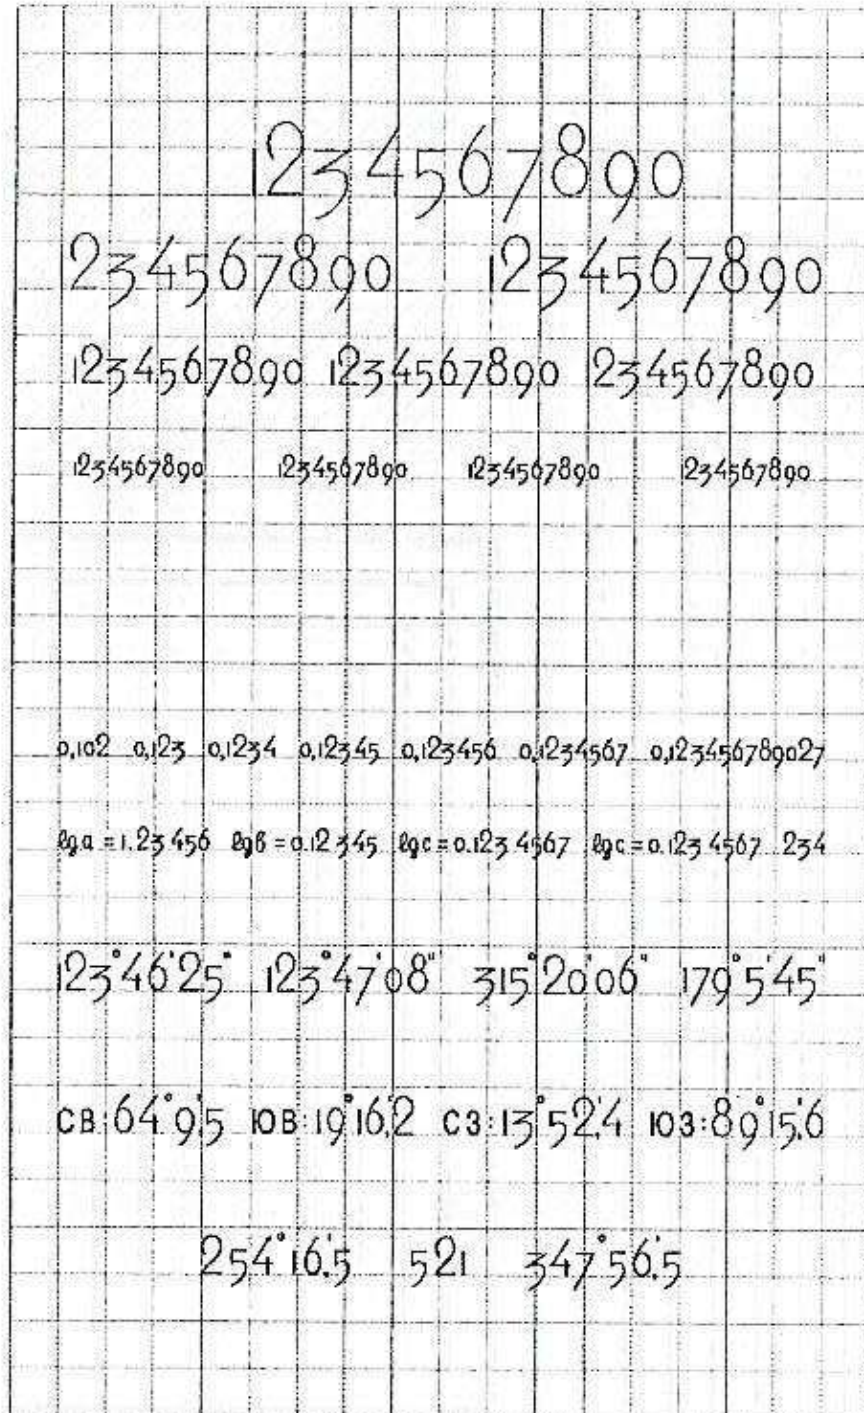 1234567890
1234567890 1234567890
1234567890 1234567890 1234567890
1234567890 1234567890 1234567890 1234567890
0,102 0,123 0,1234 0,12345 0,123456 0,1234567 0,123456789027
lg a = 1.23 456 lg в = 0.12 345 lg c = 0.123 4567 lg c = 0.123 4567 234
123°46'25" 123°47'08" 315°20'06" 179°5'45"
СВ:64°9,'5 ЮВ:19°16,'2 СЗ:13°52,'4 ЮЗ:89°15,'6
254°16,'5 521 347°56,'5